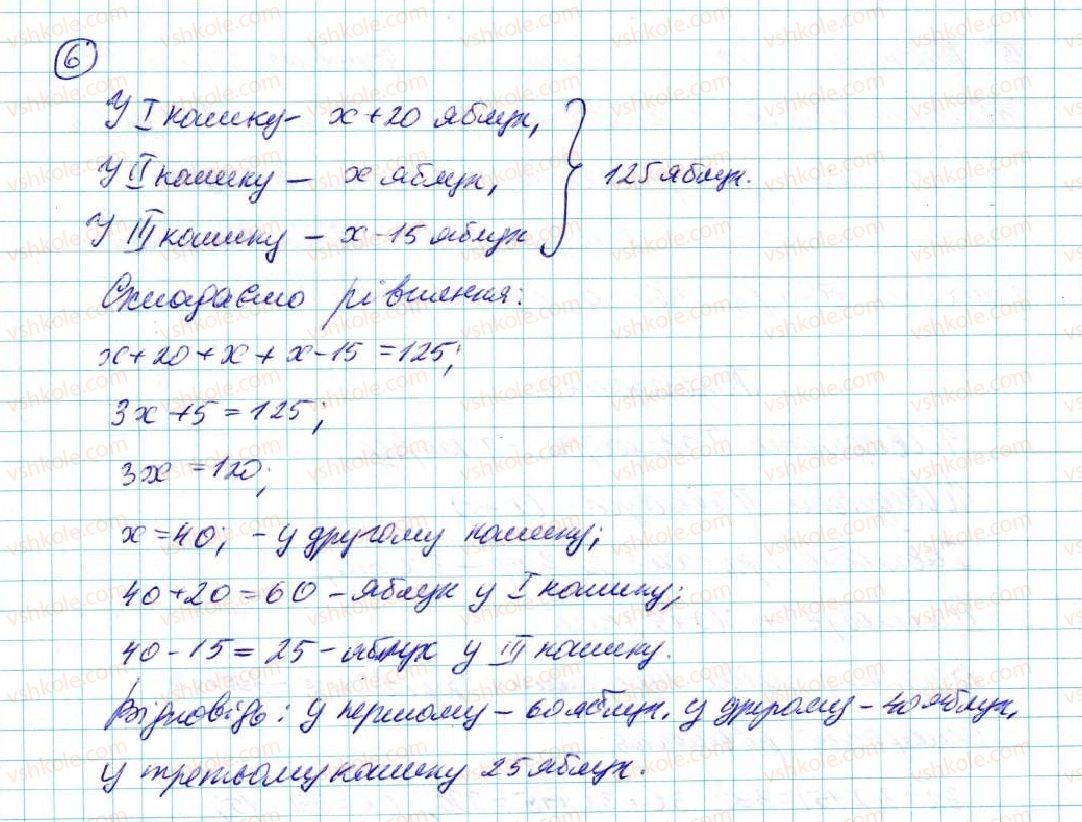 6
У I кошику - x + 20 яблук,
У II кошику - x яблук,
У III кошику - x - 15 яблук
125 яблук.
Складаємо рівняння:
x + 20 + x + x - 15 = 125;
3x + 5 = 125;
3x = 120;
x = 40; - у другому кошику;
40 + 20 = 60 - яблук у I кошику;
40 - 15 = 25 - яблук у III кошику.
Відповідь: у першому - 60 яблук, у другому - 40 яблук,
у третьому кошику 25 яблук.